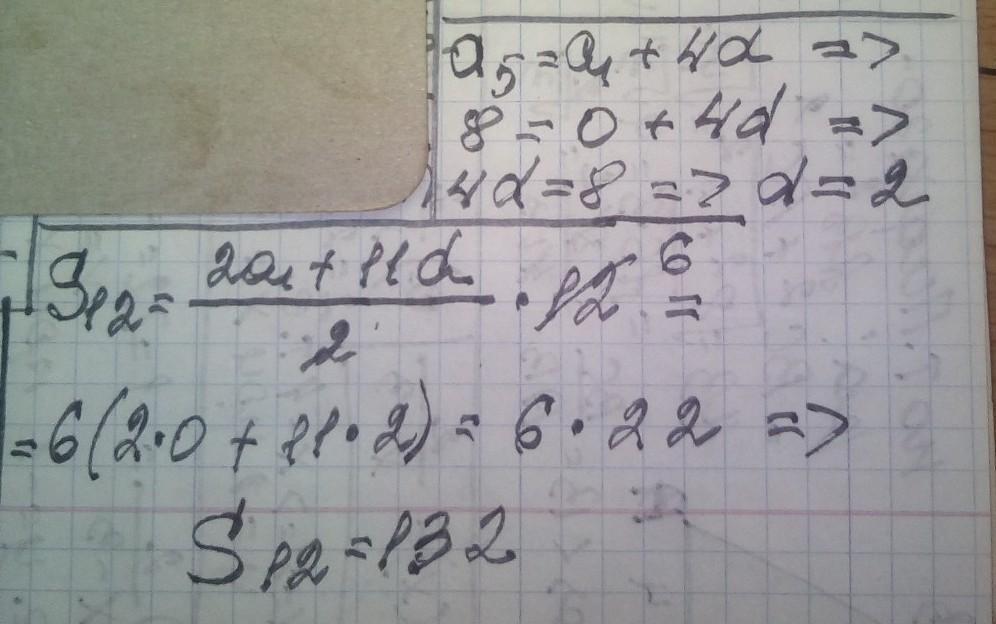 a₅ = a₁ + 4d =>
8 = 0 + 4d =>
4d = 8 => d = 2
S₁₂ = (2a₁ + 11d)/2 · 12 6 =
= 6(2·0 + 11·2) = 6·22 =>
S₁₂ = 132